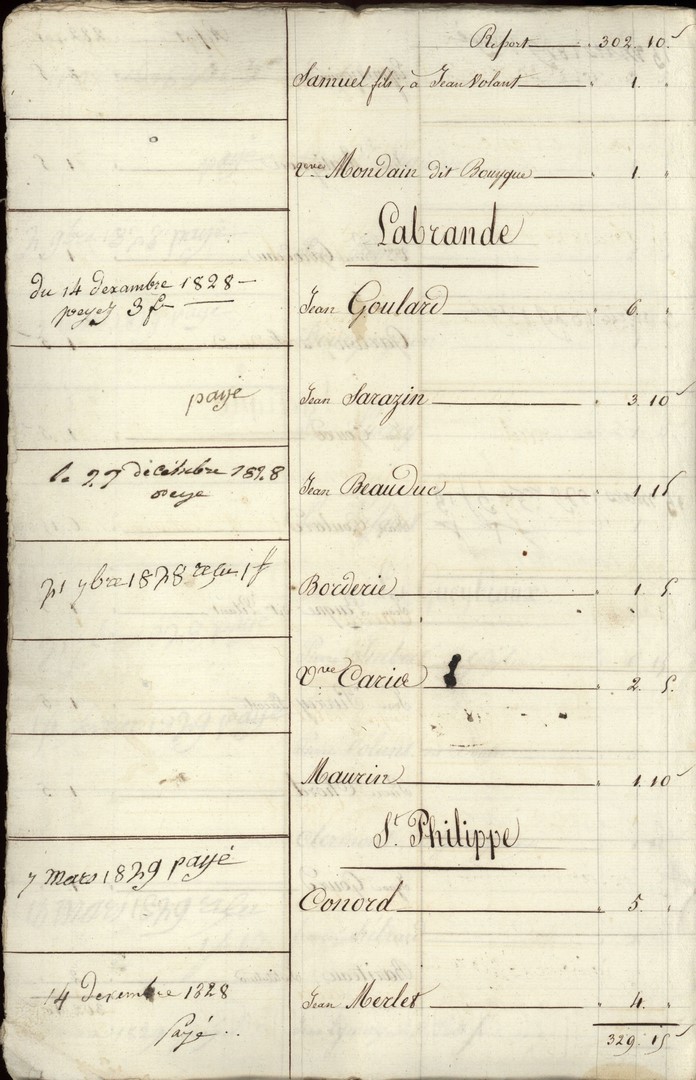 Report 302. 10
Samuel fils, à Jean Volant 1.
Vve Mondain dit Bouyque 1.
Labrande
du 14 dexambre 1828
peyez 3 f
Jean Goulard 6.
payé
Jean Sarazin 3. 10
le 27 décembre 1828
peye
Jean Beauduc 1. 15
1828 reçu 1 f
Borderie 1. 5.
Vve 2. 5.
Maurin 1. 10
St. Philippe
7 Mars 1829 payé
Conord 5.
14 dexembre 1828
Payé
Jean Merlet 4.
329. 15